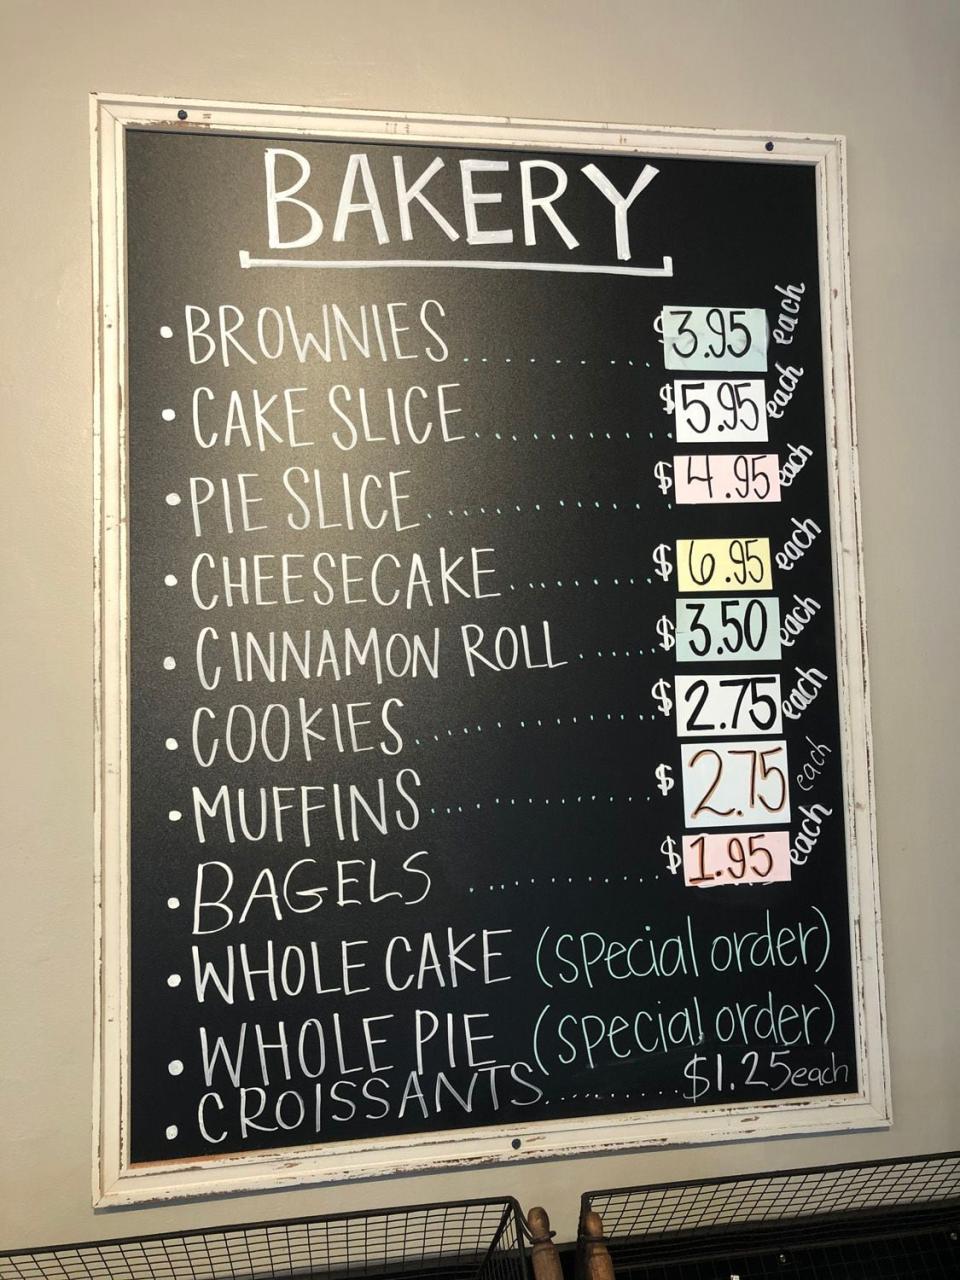 BAKERY
• BROWNIES .......... $3.95 each
• CAKE SLICE .......... $5.95 each
• PIE SLICE .......... $4.95 each
• CHEESECAKE .......... $6.95 each
• CINNAMON ROLL ..... $3.50 each
• COOKIES .......... $2.75 each
• MUFFINS .......... $2.75 each
• BAGELS .......... $1.95 each
• WHOLE CAKE (special order)
• WHOLE PIE (special order)
• CROISSANTS .......... $1.25 each